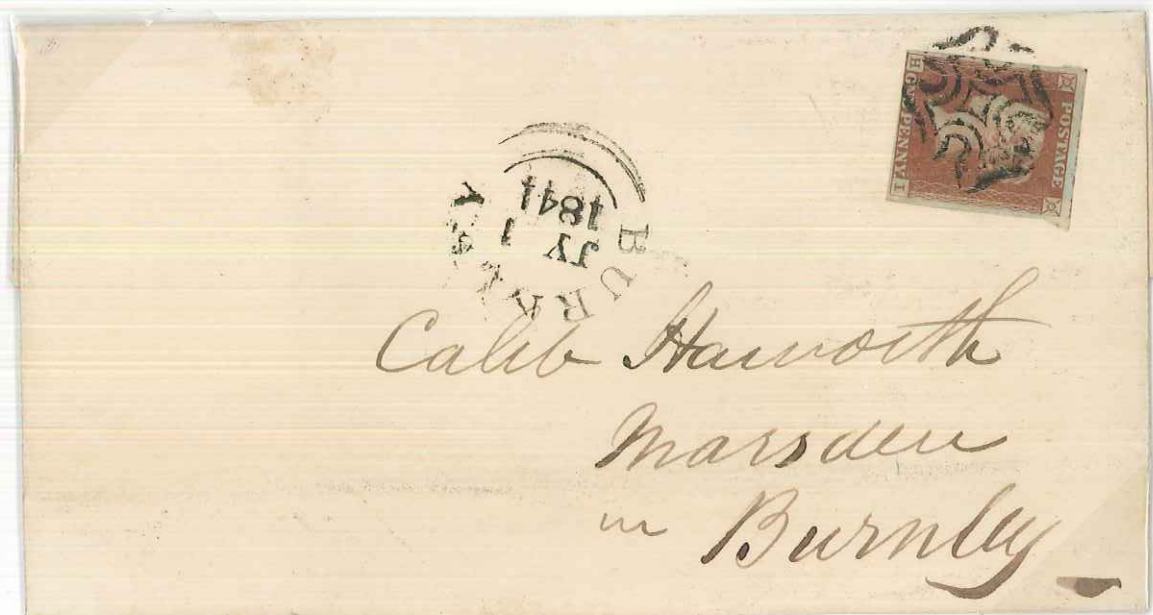 POSTAGE
H
PENNY
I
BURNLEY
JY 1
1841
Caleb Haworth
Marsden
in Burnley